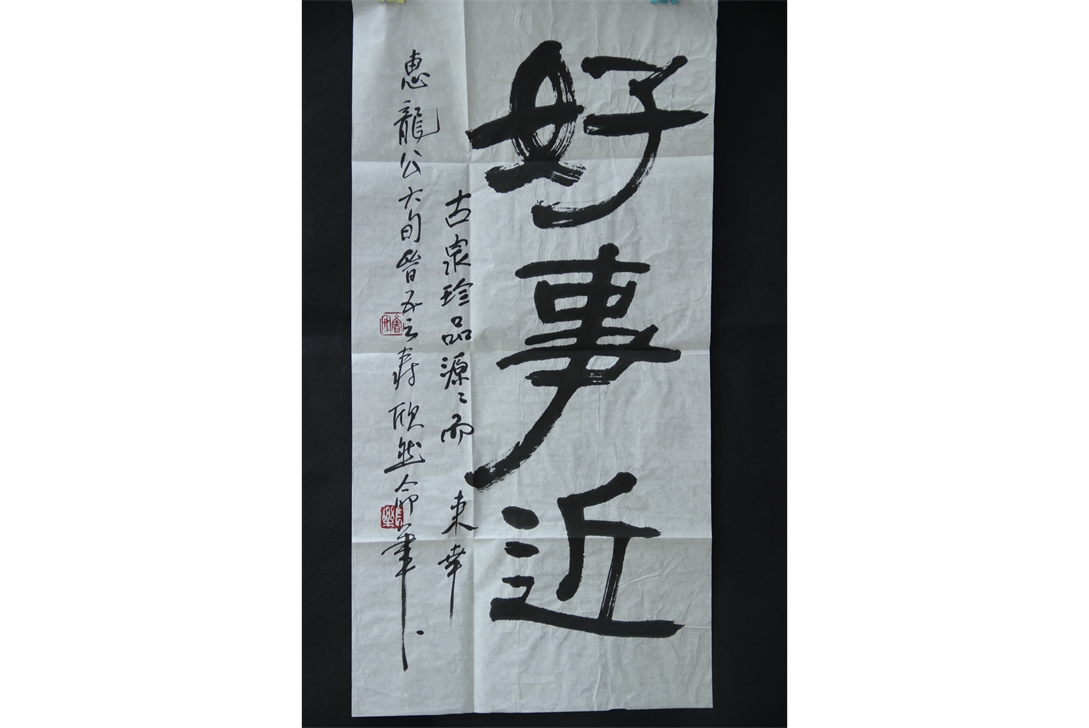 好事近
古泉珍品源源而来幸
惠龍公六旬晋五之寿欣然命筆